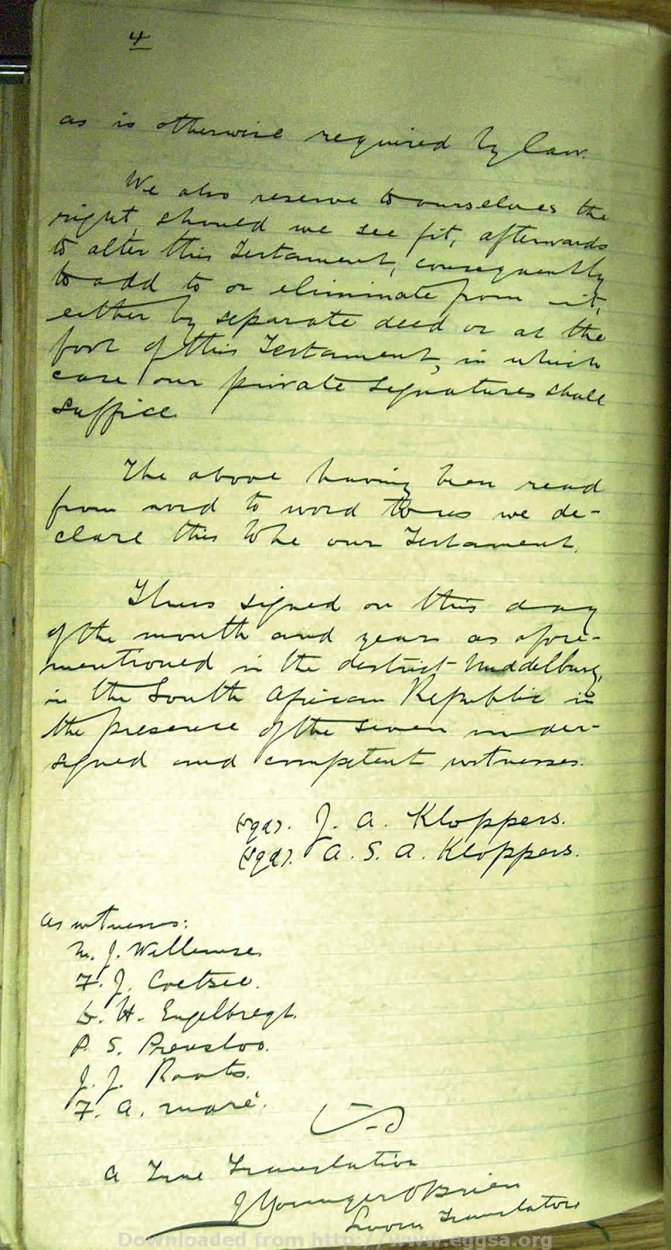 4
as is otherwise required by law.
We also reserve to ourselves the
right, should we see fit, afterwards
to alter this Testament, consequently
to add to or eliminate from it,
either by separate deed or at the
foot of this Testament, in which
case our private signatures shall
suffice.
The above having been read
from word to word to us we de-
clare this to be our Testament.
Thus signed on this day
of the month and year as afore-
mentioned in the district Middelburg,
in the South African Republic in
the presence of the seven under-
signed and competent witnesses.
(sgd). J. A. Kloppers.
(sgd). A. S. A. Kloppers.
as witness:
M. J. Willemse.
F. J. Coetsee.
H. Engelbregt.
P. S. Prensloo.
J. J. Roots.
F. A. maré.
A True Translation
J Younger OBrien
Sworn Translator
Downloaded from http://www.eggsa.org